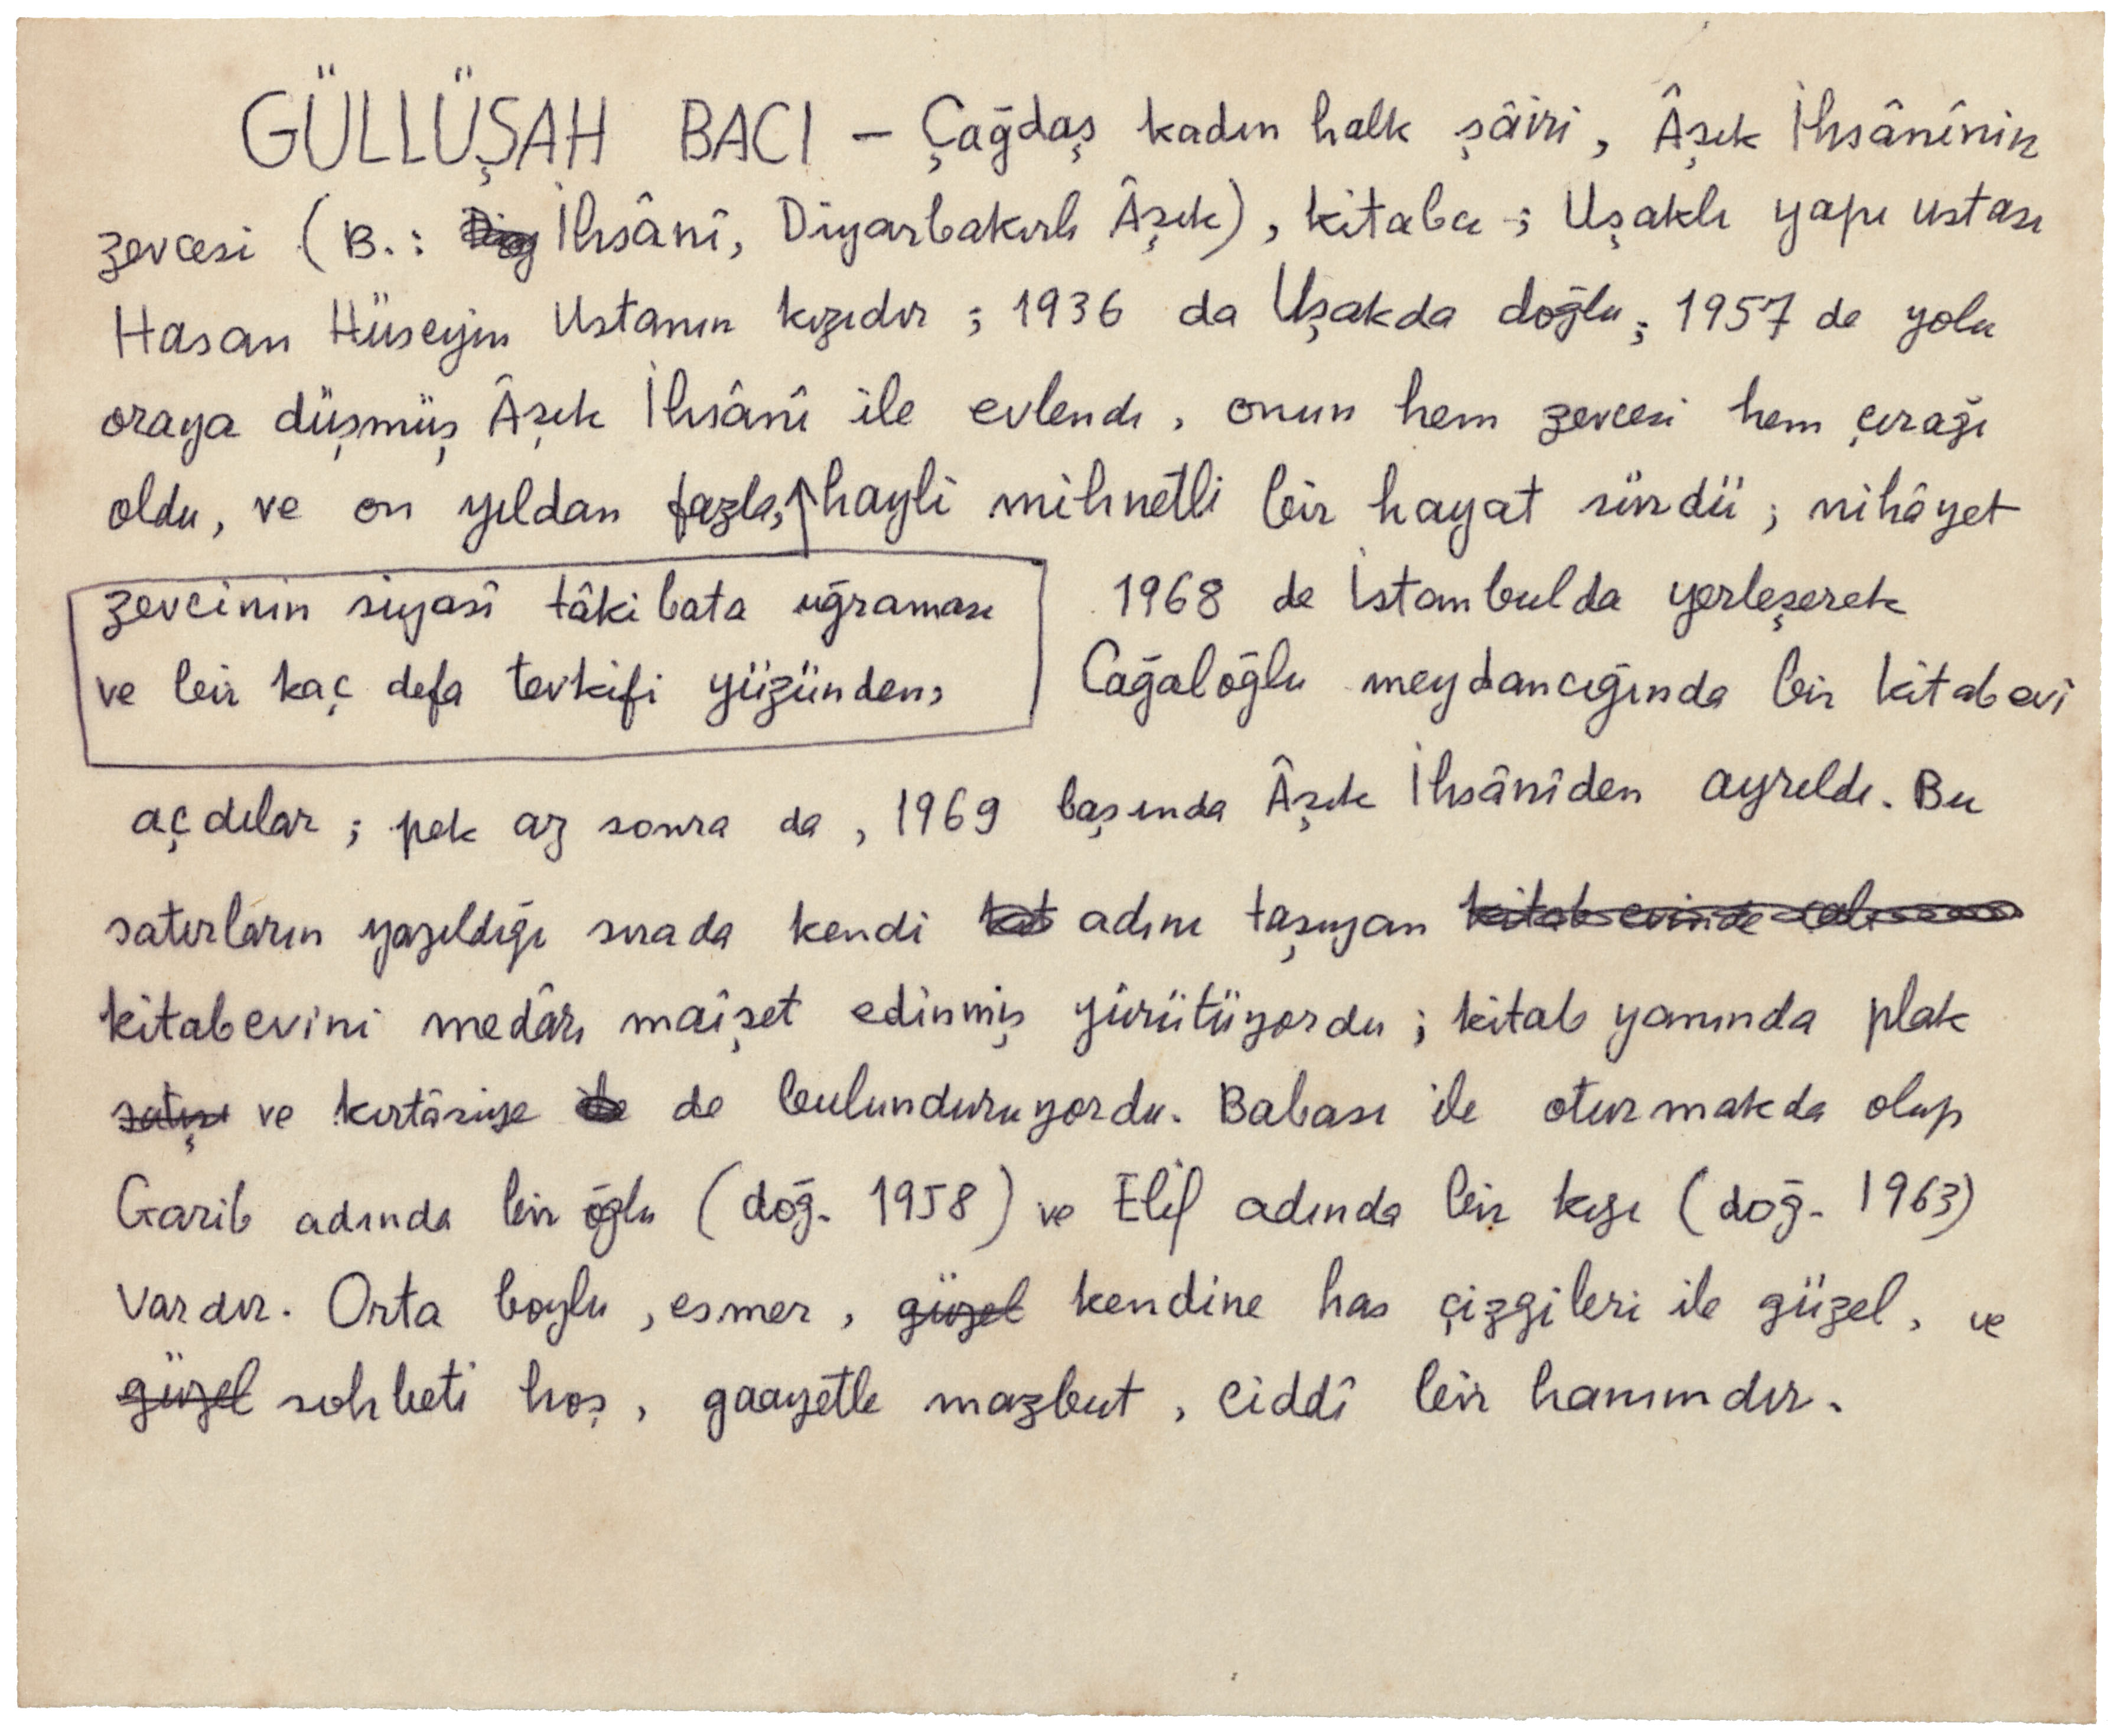 GÜLLÜŞAH BACI — Çağdaş kadın halk şâiri, Âşık İhsânînin
zevcesi (B.: İhsânî, Diyarbakırlı Âşık), kitabcı; Uşaklı yapı ustası
Hasan Hüseyin Ustanın kızıdır; 1936 da Uşakda doğdu; 1957 de yolu
oraya düşmüş Âşık İhsânî ile evlendi, onun hem zevcesi hem çırağı
oldu, ve on yıldan fazla, hayli mihnetli bir hayat sürdü; nihâyet
zevcinin siyasî tâkibata uğraması
ve bir kaç defa tevkifi yüzünden,
1968 de İstanbulda yerleşerek
Cağaloğlu meydancığında bir kitabevi
açdılar; pek az sonra da, 1969 başında Âşık İhsânîden ayrıldı. Bu
satırların yazıldığı sırada kendi adını taşıyan ~~kitabevinde~~
kitabevini medârı maîşet edinmiş yürütüyordu; kitab yanında plak
~~satışı~~ ve kırtâsiye de bulunduruyordu. Babası ile oturmakda olup
Garib adında bir oğlu (doğ. 1958) ve Elif adında bir kızı (doğ. 1963)
vardır. Orta boylu, esmer, ~~güzel~~ kendine has çizgileri ile güzel, ve
~~güzel~~ sohbeti hoş, gaayetle mazbut, ciddî bir hanımdır.